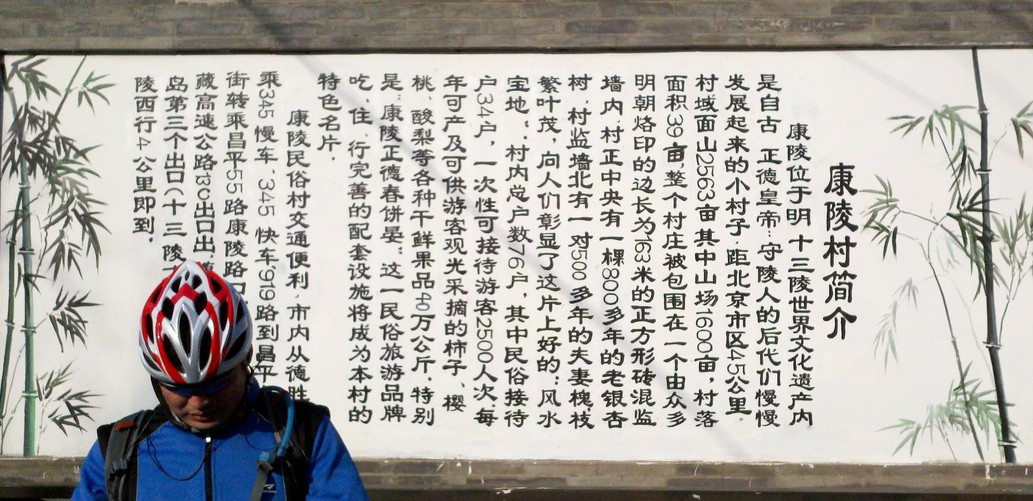 康陵村简介
康陵位于明十三陵世界文化遗产内
是自古"正德皇帝"守陵人的后代们慢慢
发展起来的小村子.距北京市区45公里.
村域面山2563亩.其中山场1600亩,村落
面积39亩.整个村庄被包围在一个由众多
明朝烙印的边长为163米的正方形砖混监
墙内.村正中央有一棵800多年的老银杏
树.村监墙北有一对500多年的夫妻槐,枝
繁叶茂,向人们彰显了这片上好的:风水
宝地".村内总户数76户,其中民俗接待
户34户,一次性可接待游客2500人次,每
年可产及可供游客观光采摘的柿子、樱
桃、酸梨等各种干鲜果品40万公斤,特别
是"康陵正德春饼宴"这一民俗旅游品牌
吃、住、行完善的配套设施将成为本村的
特色名片.
康陵民俗村交通便利.市内从德胜
乘345慢车,345快车,919路到昌平
街转乘昌平55路康陵路口
藏高速公路13C出口出.
岛第三个出口(十三陵
陵西行4公里即到.